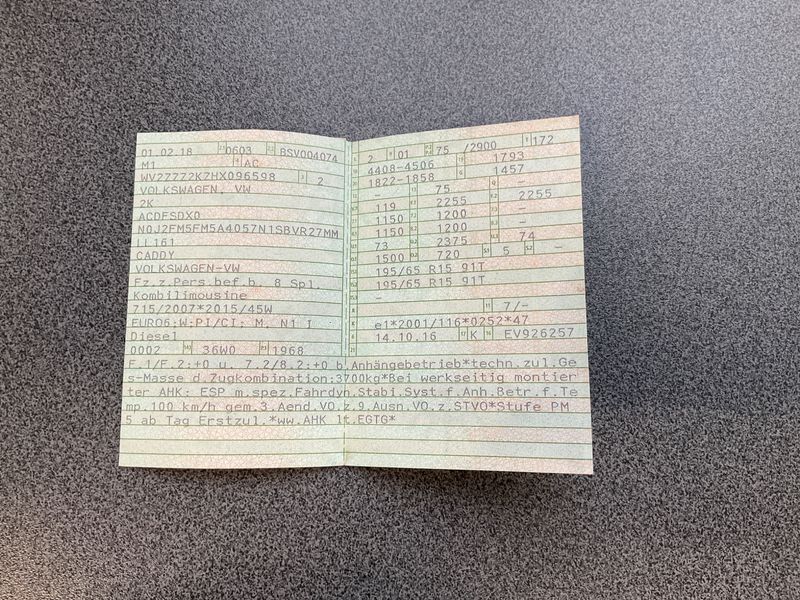 01.02.18 0603 BSV004074
M1 AC
WV2ZZZ2KZHX096598 2
VOLKSWAGEN, VW
2K
ACDFSDX0
N0J2FM5FM5A4057N1SBVR27MM
LL161
CADDY
VOLKSWAGEN-VW
Fz.z.Pers.bef.b. 8 Spl.
Kombilimousine
715/2007*2015/45W
EURO6;W;PI/CI; M, N1 I
Diesel
0002 36W0 1968
2 01 75 /2900 172
4408-4506 1793
1822-1858 1457
- 75
119 2255 2255
1150 1200
1150 1200 -
73 2375 74
1500 720 5 -
195/65 R15 91T
195/65 R15 91T
-
7/-
e1*2001/116*0252*47
14.10.16 K EV926257
F.1/F.2:+0 u. 7.2/8.2:+0 b.Anhängebetrieb*techn.zul.Ge
s-Masse d.Zugkombination:3700kg*Bei werkseitig montier
ter AHK: ESP m.spez.Fahrdyn.Stabi.Syst.f.Anh.Betr.f.Te
mp.100 km/h gem.3.Aend.VO.z.9.Ausn.VO.z.STVO*Stufe PM
5 ab Tag Erstzul.*ww.AHK lt.EGTG*